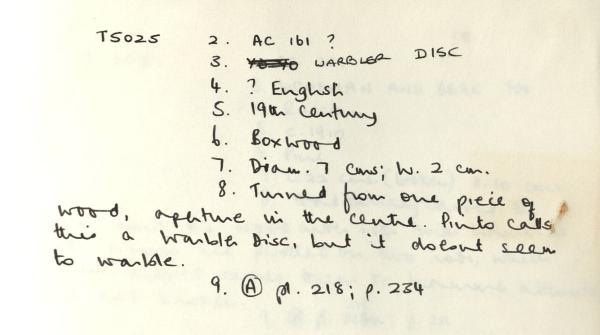 T5025 2. AC 161 ?
3. WARBLER DISC
4. ? English
5. 19th Century
6. Boxwood
7. Diam. 7 cms: W. 2 cm.
8. Turned from one piece of
wood, aperture in the centre. Pinto calls
this a Warbler Disc, but it doesnt seem
to warble.
9. Ⓐ pl. 218; p. 234